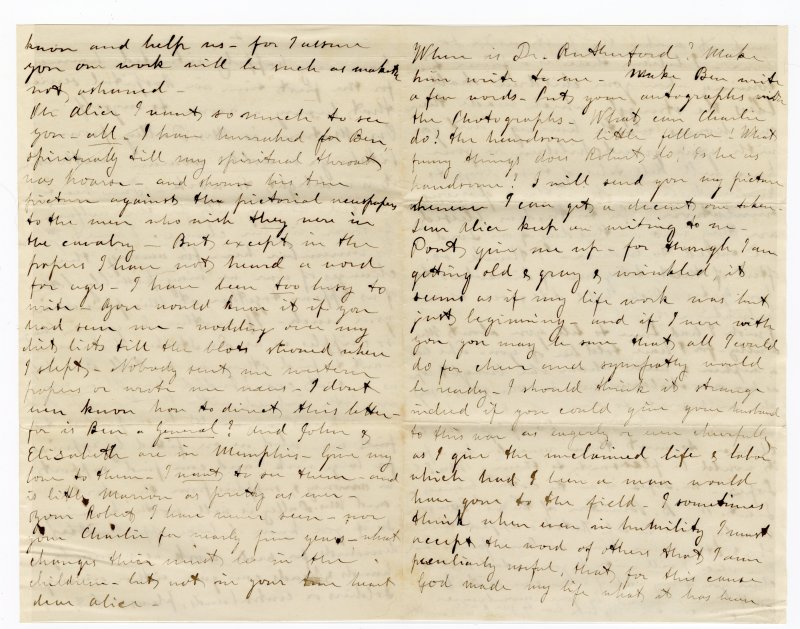 know and help us – for I assure
you our work will be such as maketh
not ashamed –
Oh Alice I want so much to see
you – all – I have hurrahed for Ben,
spiritually till my spiritual throat
was hoarse – and shown his true
picture against the pictorial newspapers
to the men who wish they were in
the cavalry – But except in the
papers I have not heard a word
for ages – I have been too busy to
write – You would know it if you
had seen me – nodding over my
diet lists till the blots showed where
I slept – Nobody sent me western
papers or wrote me news – I dont
even know how to direct this letter –
for is Ben a General? and John &
Elizabeth are in Memphis – Give my
love to them – I want to see them – and
is little Marion as pretty as ever –
Your Robert I have never seen – nor
your Charlie for nearly five years – what
changes there must be in the
children – but not in your heart
dear Alice –
Where is Dr. Rutherford? Make
him write to me – Make Ben write
a few words – Put your autographs with
the Photographs – What can Charlie
do? the handsome little fellow! What
funny things does Robert do? Is he as
handsome? I will send you my picture
whenever I can get a decent one taken –
Dear Alice keep on writing to me –
Dont give me up – for though I am
getting old & gray & wrinkled it
seems as if my life work was but
just beginning and if I were with
you you may be sure that all I could
do for cheer and sympathy would
be ready – I should think it strange
indeed if you could give your husband
to this war as eagerly or even cheerfully
as I give the unclaimed life & labor
which had I been a man would
have gone to the field – I sometimes
think when even in humility I must
accept the word of others that I am
peculiarly useful, that for this cause
God made my life what it has been –